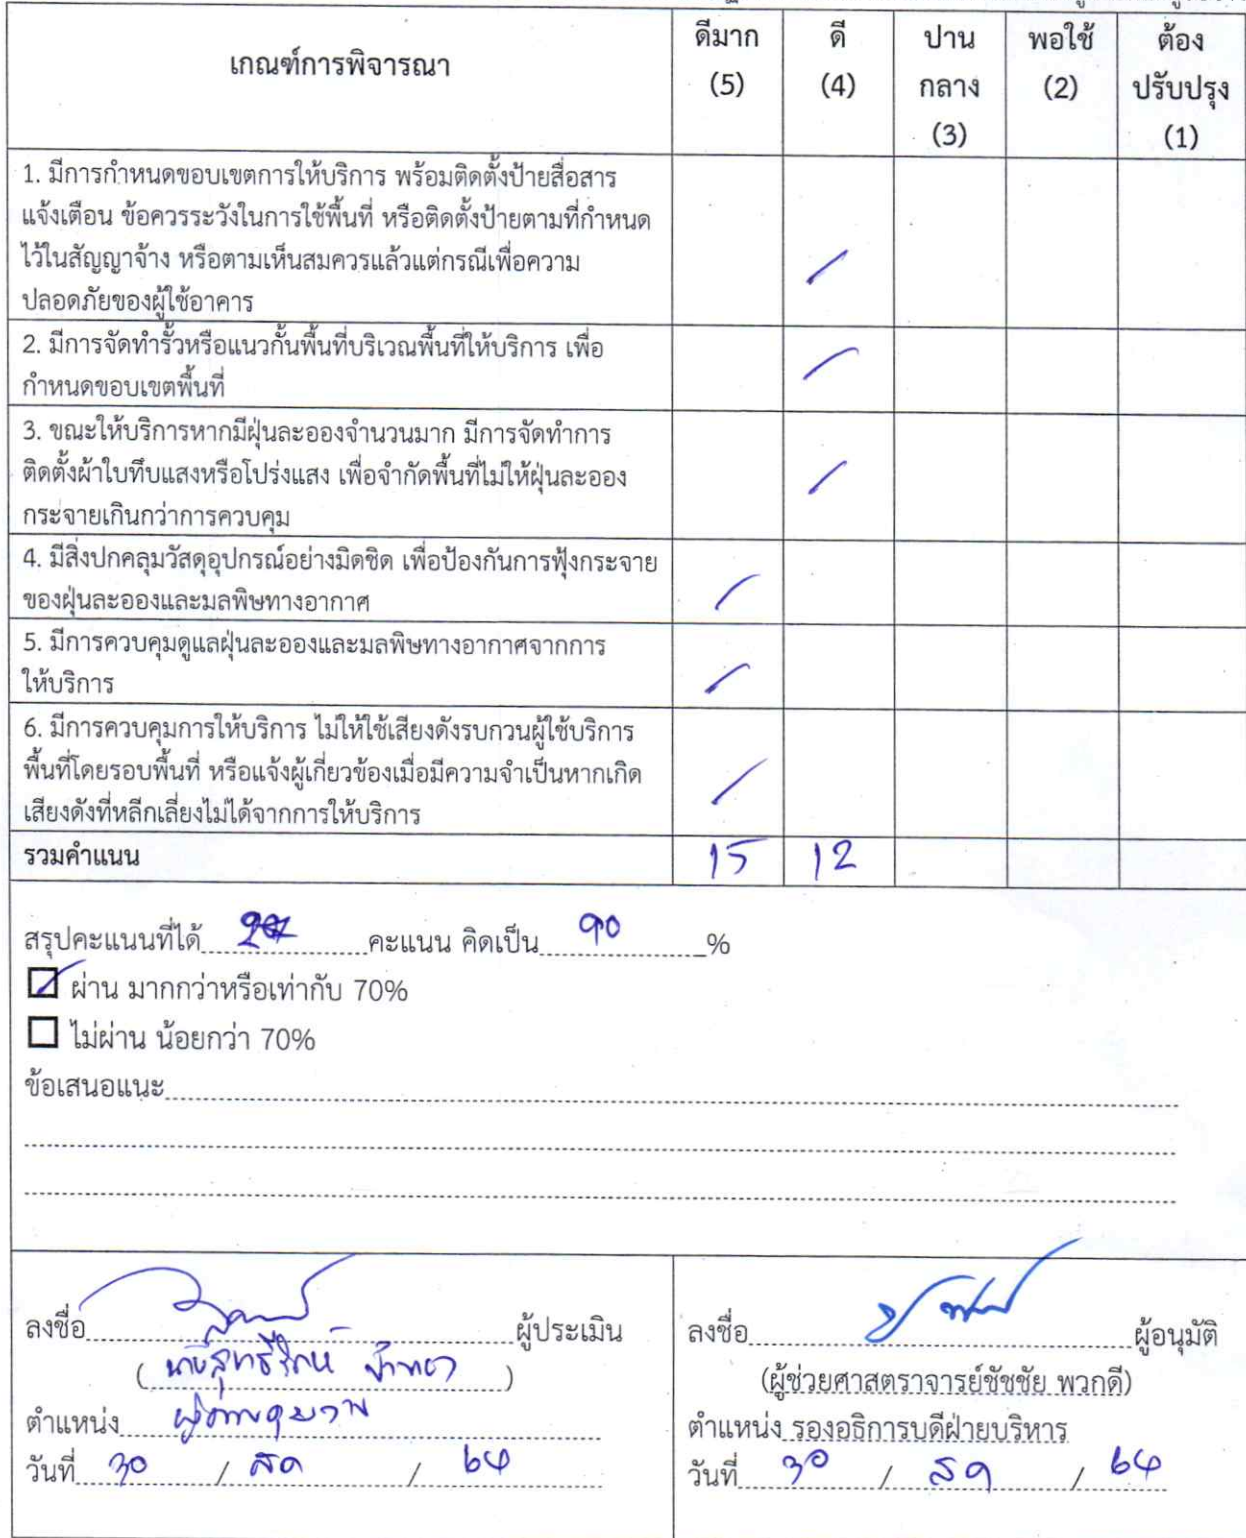 เกณฑ์การพิจารณา
ดีมาก
(5)
ดี
(4)
ปาน
กลาง
(3)
พอใช้
(2)
ต้อง
ปรับปรุง
(1)
1. มีการกำหนดขอบเขตการให้บริการ พร้อมติดตั้งป้ายสื่อสาร
แจ้งเตือน ข้อควรระวังในการใช้พื้นที่ หรือติดตั้งป้ายตามที่กำหนด
ไว้ในสัญญาจ้าง หรือตามเห็นสมควรแล้วแต่กรณีเพื่อความ
ปลอดภัยของผู้ใช้อาคาร
2. มีการจัดทำรั้วหรือแนวกั้นพื้นที่บริเวณพื้นที่ให้บริการ เพื่อ
กำหนดขอบเขตพื้นที่
3. ขณะให้บริการหากมีฝุ่นละอองจำนวนมาก มีการจัดทำการ
ติดตั้งผ้าใบทึบแสงหรือโปร่งแสง เพื่อจำกัดพื้นที่ไม่ให้ฝุ่นละออง
กระจายเกินกว่าการควบคุม
4. มีสิ่งปกคลุมวัสดุอุปกรณ์อย่างมิดชิด เพื่อป้องกันการฟุ้งกระจาย
ของฝุ่นละอองและมลพิษทางอากาศ
5. มีการควบคุมดูแลฝุ่นละอองและมลพิษทางอากาศจากการ
ให้บริการ
6. มีการควบคุมการให้บริการ ไม่ให้ใช้เสียงดังรบกวนผู้ใช้บริการ
พื้นที่โดยรอบพื้นที่ หรือแจ้งผู้เกี่ยวข้องเมื่อมีความจำเป็นหากเกิด
เสียงดังที่หลีกเลี่ยงไม่ได้จากการให้บริการ
รวมคำแนน 15 12
สรุปคะแนนที่ได้ 27 คะแนน คิดเป็น 90 %
ผ่าน มากกว่าหรือเท่ากับ 70%
ไม่ผ่าน น้อยกว่า 70%
ข้อเสนอแนะ
ลงชื่อ ผู้ประเมิน
( )
ตำแหน่ง
วันที่ 30 / สค / 64
ลงชื่อ ผู้อนุมัติ
(ผู้ช่วยศาสตราจารย์ชัชชัย พวกดี)
ตำแหน่ง รองอธิการบดีฝ่ายบริหาร
วันที่ 30 / สค / 64